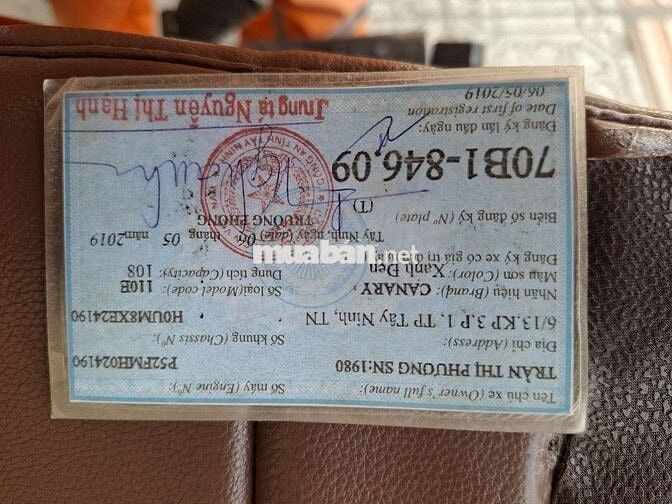 Tên chủ xe (Owner's full name):
TRẦN THỊ PHƯƠNG SN:1980
Địa chỉ (Address):
6/13.KP 3.P 1. TP Tây Ninh, TN
Nhãn hiệu (Brand): CANARY
Màu sơn (Color): Xanh Đen
Đăng ký xe có giá trị
Biển số đăng ký (N° plate)
70B1-846.09
Đăng ký lần đầu ngày:
Date of first registration
06/05/2019
Số máy (Engine N°):
P52FMH024190
Số khung (Chassis N°):
H0UM8XE24190
Số loại(Model code): 110E
Dung tích (Capacity): 108
Tây Ninh, ngày (date) 06 tháng 05 năm 2019
(T) TRƯỞNG PHÒNG
CÔNG AN TỈNH TÂY NINH
Trung tá Nguyễn Thị Hạnh
muaban.net